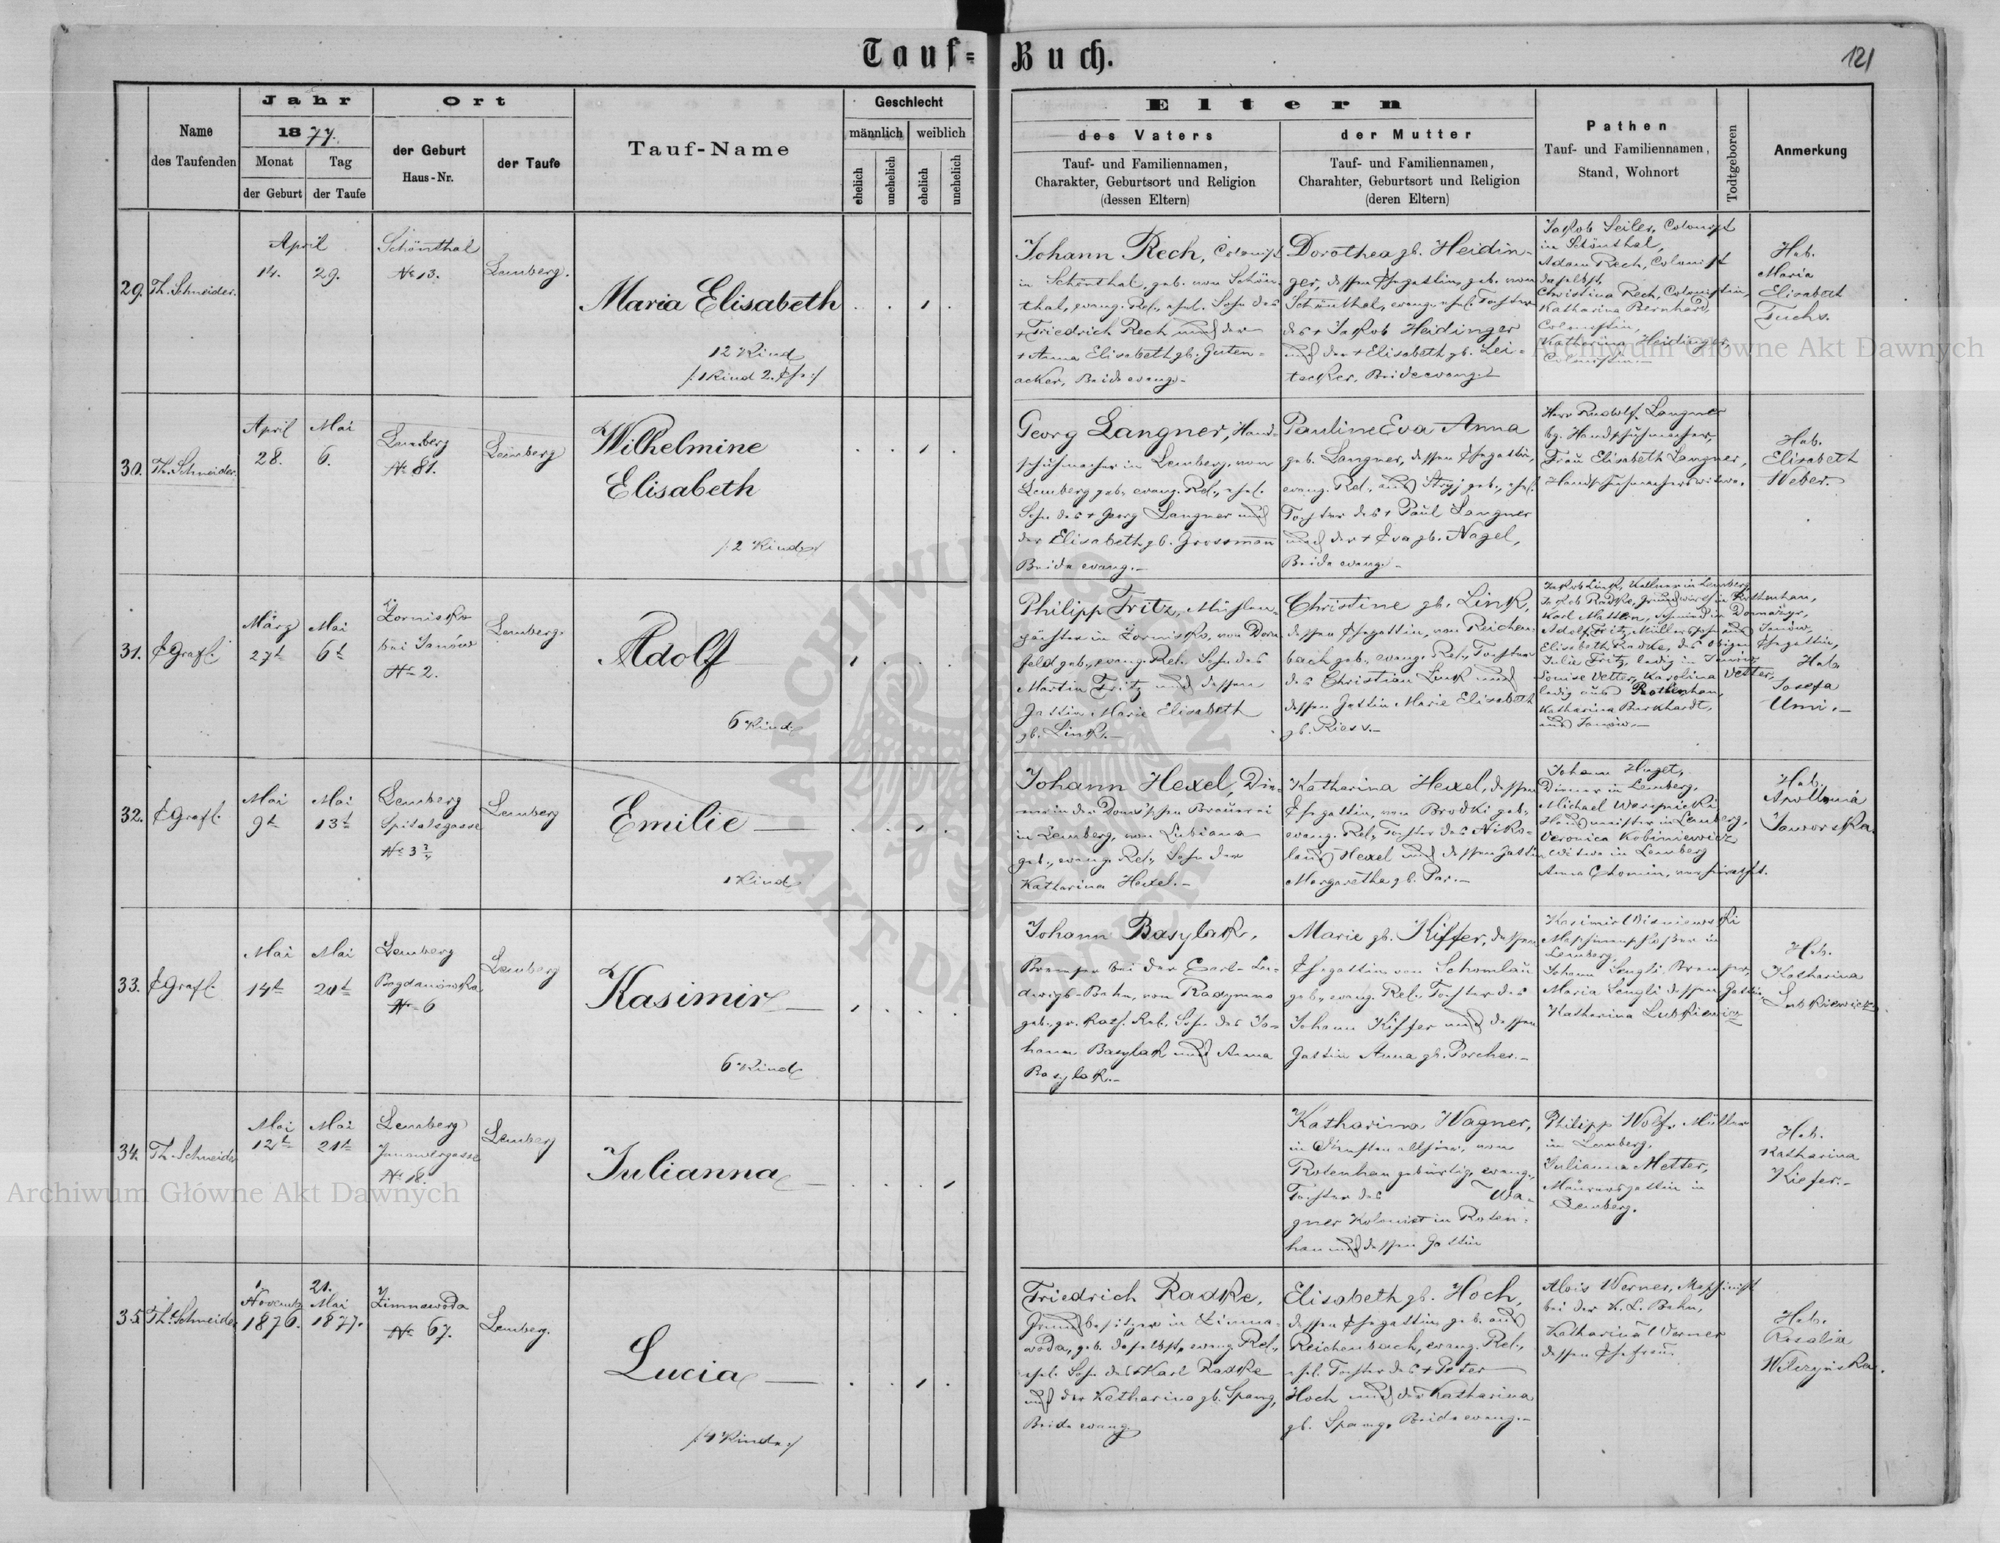 Tauf=Buch.
121
Name
des Taufenden
Jahr
1877.
Monat
der Geburt
Tag
der Taufe
Ort
der Geburt
Haus-Nr.
der Taufe
Tauf-Name
Geschlecht
männlich
weiblich
ehelich
unehelich
ehelich
unehelich
Eltern
des Vaters
Tauf- und Familiennamen,
Charakter, Geburtsort und Religion
(dessen Eltern)
der Mutter
Tauf- und Familiennamen,
Charahter, Geburtsort und Religion
(deren Eltern)
Pathen
Tauf- und Familiennamen,
Stand, Wohnort
Todtgeboren
Anmerkung
29. Th. Schneider.
April
14. 29.
Schönthal
No 13.
Lemberg.
Maria Elisabeth
12 Kind
/:1 Kind 2. Ehe:/
Johann Rech, Colonist
in Schönthal, geb. von Schön-
thal, evang. Rel., ehel. Sohn des
+ Friedrich Rech und der
+ Anna Elisabeth gb. Guten-
acker, Beide evang.
Dorothea gb. Heidin-
ger, dessen Ehegattin, geb. von
Schönthal, evang., ehel. Tochter
des + Jakob Heidinger
und der + Elisabeth gb. Lei-
tecker, Beide evang.
Jakob Seiler, Colonist
in Schönthal,
Adam Rech, Colonist
daselbst,
Christina Rech, Colonistin,
Katharina Bernhard,
Colonistin,
Katharina Heidinger,
Colonistin
Heb.
Maria
Elisabeth
Fuchs.
30. Th. Schneider.
April Mai
28. 6.
Lemberg
No 81.
Lemberg
Wilhelmine
Elisabeth
/:2 Kind:/
Georg Langner, Hand-
schuhmacher in Lemberg, von
Lemberg geb., evang. Rel., ehel.
Sohn des + Georg Langner und
der Elisabeth gb. Grossman
Beide evang.
Pauline Eva Anna
geb. Langner, dessen Ehegattin,
evang. Rel., aus Stryj geb., ehel.
Tochter des + Paul Langner
und der + Eva gb. Nagel,
Beide evang.
Herr Rudolf Langner
bg. Handschuhmacher,
Frau Elisabeth Langner,
Handschuhmacherswitwe.
Heb.
Elisabeth
Weber.
31. E Graf.
März Mai
27t 6t
bei Janów
No 2.
Lemberg
Adolf
6 Kind
Philipp Fritz, Mühlen-
pächter in, von Dorn
feld geb., evang. Rel., Sohn des
Martin Fritz und dessen
Gattin Marie Elisabeth
gb. Link.
Christine gb. Link,
dessen Ehegattin, von Reichen-
bach geb., evang. Rel., Tochter
des Christian Link und
dessen Gattin Marie Elisabeth
gb. Riess.
Jakob Link, Kellner in Lemberg
Jakob Radke, Grundwirth in Rottenhan,
Elisabeth Radke, des obigen Ehegattin,
Julie Fritz, ledig in Janów,
Louise Vetter, Karolina Vetter,
ledig aus Rothenhan,
Katharina Burkhardt,
aus Janów.
Heb.
Josefa
Umi.
32. E Graf.
Mai Mai
9t 13t
Lemberg
Spitalgasse
Lemberg
Emilie
1 Kind
Johann Hexel, Die-
ner in der Brauerei
in Lemberg, von
geb., evang. Rel., Sohn der
Katharina Hexel.
Katharina Hexel, dessen
Ehegattin, von Brodki geb.,
evang. Rel., Tochter des Niko-
laus Hexel und dessen Gattin
Margaretha gb. Par.
Johann Huget,
Diener in Lemberg,
Michael
Hausmeister in Lemberg,
Veronica Kobiniewicz
Witwe in Lemberg
Anna Chomin, verheirathet.
Heb.
Apollonia
Jaworska
33. E Graf.
Mai Mai
14t 20t
Lemberg
Bogdanówka
No 6
Lemberg
Kasimir
6 Kind
Johann Basylak,
Bremser bei der Carl-Lu-
dwigs-Bahn, von Radymno
geb., gr. kath. Rel., Sohn des Jo-
hann Basylak und Anna
Basylak.
Marie gb. Kiffer, dessen
Ehegattin von Schomlau
geb., evang. Rel., Tochter des
Johann Kiffer und dessen
Gattin Anna gb. Porcher.
Kasimir Wisniewski
Maschinenschlosser in
Lemberg,
Johann Lengli, Bremser,
Maria Lengli dessen Gattin
Katharina Lutkiewicz
Heb.
Katharina
Lutkiewicz
34. Th. Schneider
Mai Mai
12t 21t
Lemberg
Janowergasse
No 18.
Lemberg
Julianna
Katharina Wagner,
in Diensten allhier, von
Rotenhan gebürtig, evang.,
Tochter des Wa-
gner Kolonist in Roten-
han und dessen Gattin
Philipp Wolf, Müller
in Lemberg.
Julianna Metter,
Maurersgattin in
Lemberg.
Heb.
Katharina
Kiefer.
35. Th. Schneider
1 21.
Novemb. Mai
1876. 1877.
Zimnawoda
No 67.
Lemberg.
Lucia
/:4 Kind:/
Friedrich Radke,
Grundbesitzer in Zimna-
woda, geb. daselbst, evang. Rel.,
ehel. Sohn des + Karl Radke
und der Katharina gb. Spang,
Beide evang.
Elisabeth gb. Hoch,
dessen Ehegattin, geb. aus
Reichenbach, evang. Rel.,
ehel. Tochter des + Peter
Hoch und der Katharina
gb. Spang, Beide evang.
Alois Werner, Maschinist
bei der K. L. Bahn,
Katharina Werner
dessen Ehefrau.
Heb.
Rosalia
Wilczynska.
Archiwum Główne Akt Dawnych
Archiwum Główne Akt Dawnych
ARCHIWUM GŁÓWNE AKT DAWNYCH